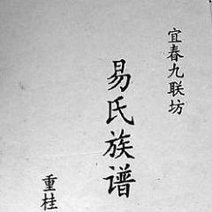 宜春九联坊
易氏族谱
重桂